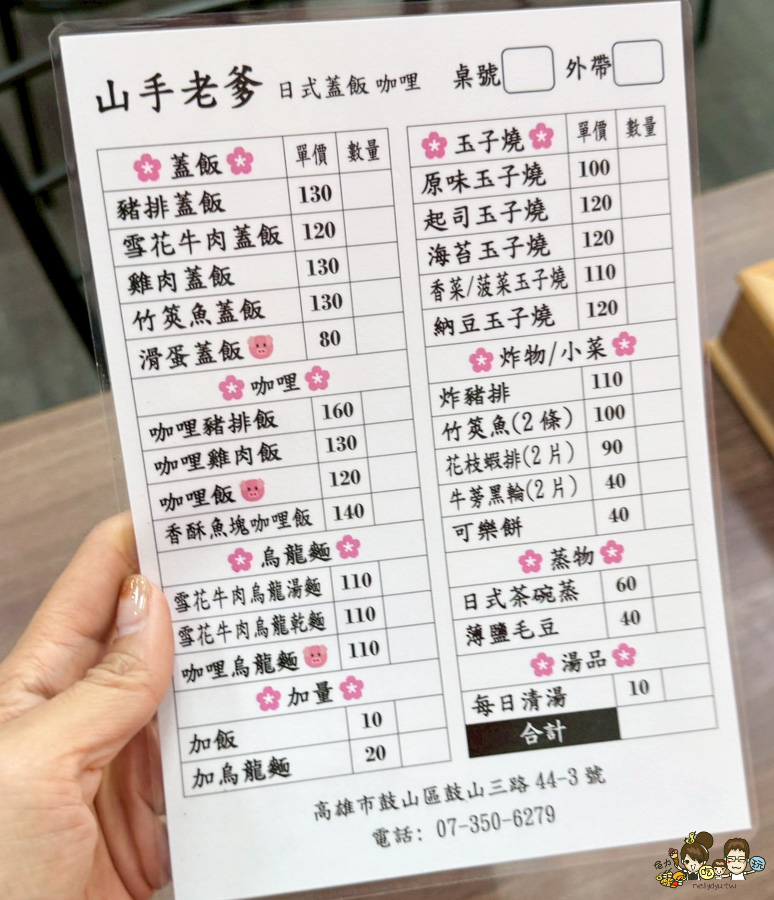 山手老爹 日式蓋飯 咖哩 桌號 外帶
蓋飯 單價 數量
豬排蓋飯 130
雪花牛肉蓋飯 120
雞肉蓋飯 130
竹筴魚蓋飯 130
滑蛋蓋飯 80
咖哩
咖哩豬排飯 160
咖哩雞肉飯 130
咖哩飯 120
香酥魚塊咖哩飯 140
烏龍麵
雪花牛肉烏龍湯麵 110
雪花牛肉烏龍乾麵 110
咖哩烏龍麵 110
加量
加飯 10
加烏龍麵 20
玉子燒 單價 數量
原味玉子燒 100
起司玉子燒 120
海苔玉子燒 120
香菜/菠菜玉子燒 110
納豆玉子燒 120
炸物/小菜
炸豬排 110
竹筴魚(2條) 100
花枝蝦排(2片) 90
牛蒡黑輪(2片) 40
可樂餅 40
蒸物
日式茶碗蒸 60
薄鹽毛豆 40
湯品
每日清湯 10
合計
高雄市鼓山區鼓山三路 44-3 號
電話: 07-350-6279
nellydyu.tw